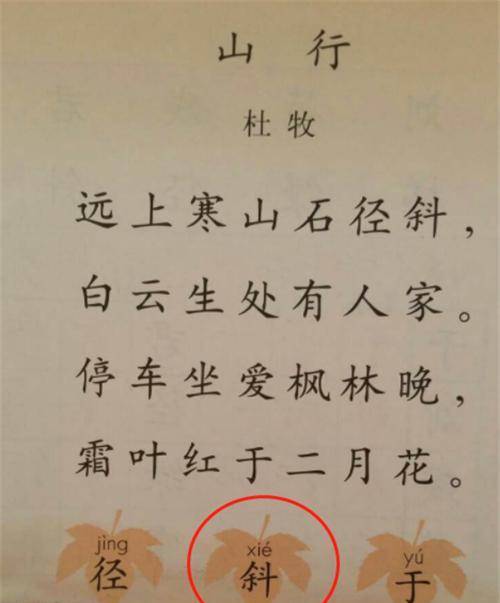 山行
杜牧
远上寒山石径斜，
白云生处有人家。
停车坐爱枫林晚，
霜叶红于二月花。
jìng xié yú
径 斜 于